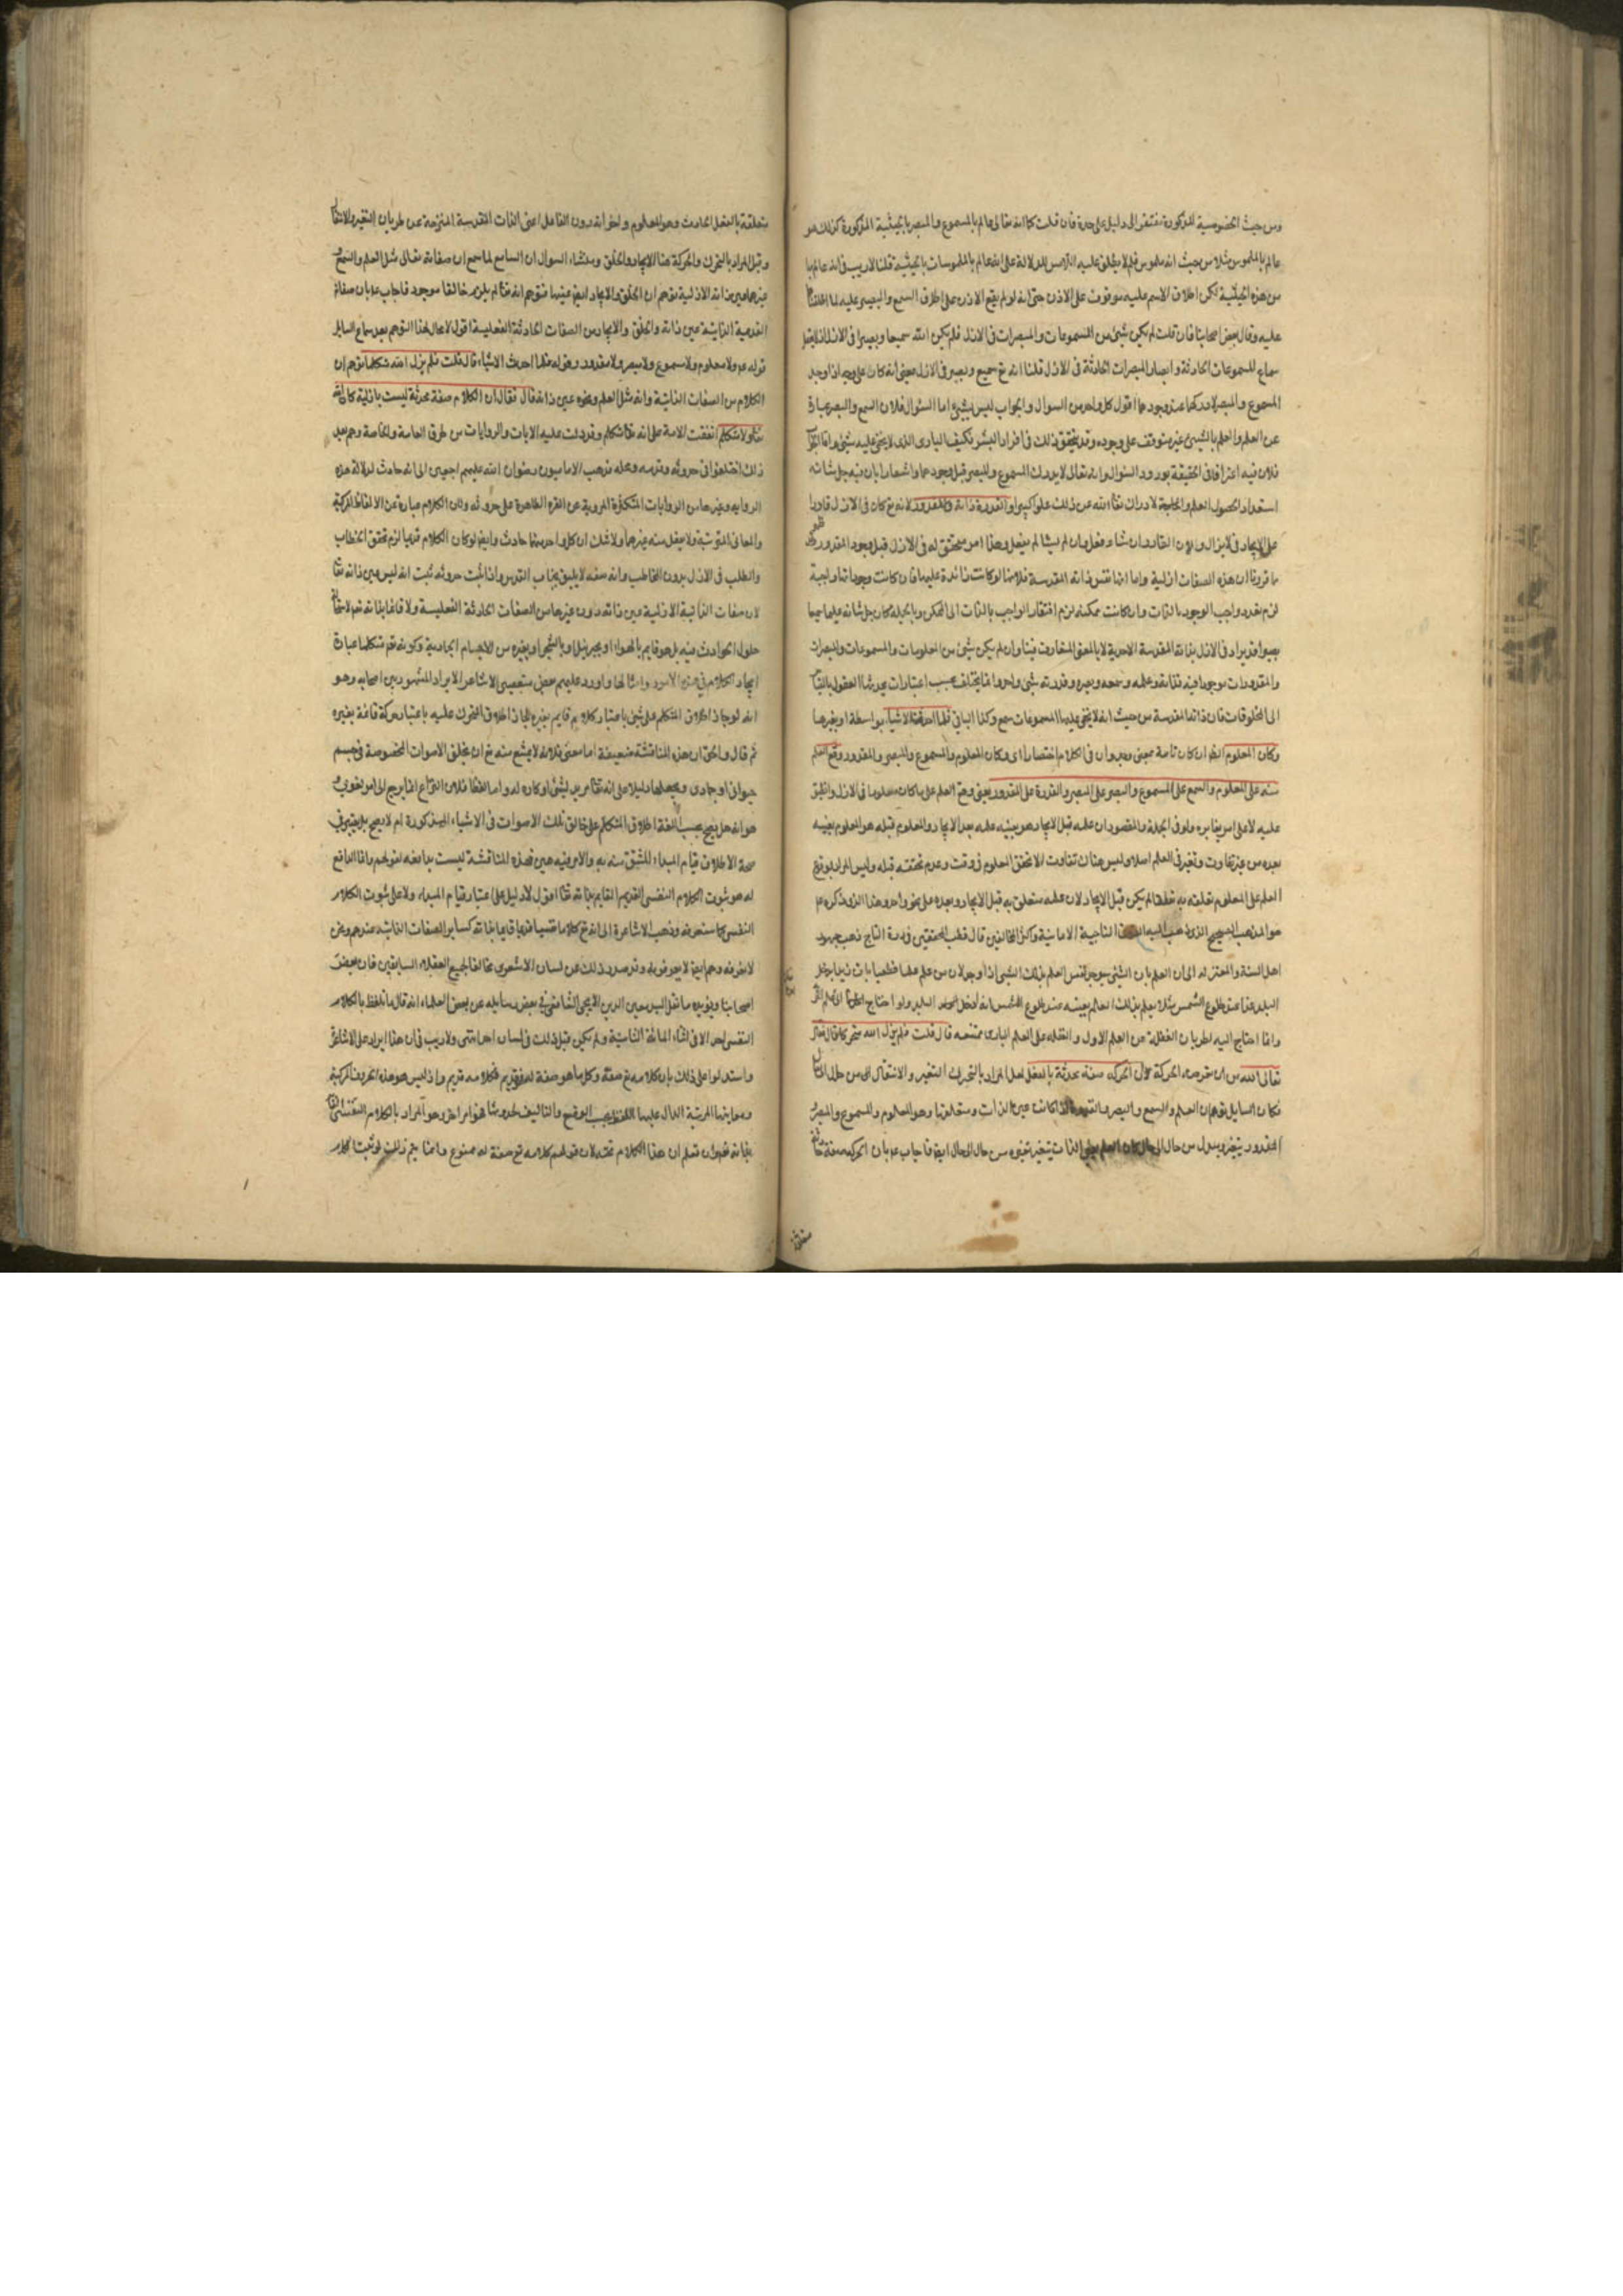 ومن حيث الخصوصية المذكورة مفتقر الى دليل على حدة فان قلت كما انه تعالى عالم بالمسموع والمبصر بالحيثية المذكورة كذلك هو
عالم بالملموس مثلا من حيث انه ملموس فلم لا يطلق عليه اللامس للدلالة على انه عالم بالملموسات بالحيثية قلنا لا ريب في انه عالم بها
من هذه الحيثية لكن اطلاق الاسم عليه موقوف على الاذن حتى انه لو لم يقع الاذن على اطلاق السميع والبصير عليه لما اطلقنا
عليه وقال بعض اصحابنا فان قلت لم يكن شيئ من المسموعات والمبصرات في الازل فلم يكن الله سميعا وبصيرا في الازل اذ لا يعقل
سماع المسموعات الحادثة وابصار المبصرات الحادثة في الازل قلنا انه تع سميع وبصير في الازل بمعنى انه كان على وجه اذا وجد
المسموع والمبصر لادركهما عند وجودهما اقول كل واحد من السؤال والجواب ليس بشيئ اما السؤال فلان السمع والبصر عبارة
عن العلم والعلم بالشيئ غير متوقف على وجوده وقد يتحقق ذلك في افراد البشر فكيف الباري الذي لا يخفى عليه شيئ واما الجواب
فلان فيه اعترافا في الحقيقة بورود السؤال وانه تعالى لا يدرك المسموع والمبصر قبل وجودهما واشعارا بان فيه جل شانه
استعداد الحصول العلم والحاجة لادراك تعالى الله عن ذلك علوا كبيرا والقدرة ذاته ولا مقدور لانه تع كان في الازل قادرا
على الايجاد في لا يزال ولان القادر ان شاء فعل وان لم يشا لم يفعل وهذا امر متحقق له في الازل قبل وجود المقدور
ما قررنا ان هذه الصفات ازلية واما انها نفس ذاته المقدسة فلانها لو كانت زائدة عليها فان كانت وجوداتها واجبة
لزم تعدد واجب الوجود بالذات وان كانت ممكنة لزم افتقار الواجب بالذات الى الممكن وبالجملة كان جل شانه عليما سميعا
بصيرا قديرا في الازل بذاته المقدسة الاحدية لا بالمعنى المتعارف فينا وان لم يكن شيئ من المعلومات والمسموعات والمبصرات
والمقدورات موجودا فيه فذاته وعلمه وسمعه وبصره وقدرته شيئ واحد وانما يختلف بحسب اعتبارات يحدثها العقول بالقياس
الى المخلوقات فان ذاته المقدسة من حيث انه لا يخفى عليها المسموعات سمع وكذا البواقي فلما احدث الاشياء بواسطة او بغيرها
وكان المعلوم الظ ان كان تامة بمعنى وجد وان في الكلام اختصارا اي وكان المعلوم والمسموع والمبصر والمقدور وقع العلم
منه على المعلوم والسمع على المسموع والبصر على المبصر والقدرة على المقدور يعني وقع العلم على ما كان معلوما في الازل وانطبق
عليه لا على امر يغايره ولو في الجملة والمقصود ان علمه قبل الايجاد هو بعينه علمه بعد الايجاد والمعلوم قبله هو المعلوم بعينه
بعده من غير تفاوت وتغير في العلم اصلا وليس هناك تفاوت الا تحقق المعلوم في وقت وعدم تحققه قبله وليس المراد بوقوع
العلم على المعلوم تعلقه به تعلقا لم يكن قبل الايجاد لان علمه متعلق به قبل الايجاد وبعده على نحو واحد وهذا الذي ذكره ع
هو المذهب الصحيح الذي ذهب اليه الناجية الامامية واكثر المخالفين قال قطب المحققين في درة التاج ذهب جمهور
اهل السنة والمعتزلة الى ان العلم بان الشيئ سيوجد نفس العلم بذلك الشيئ اذا وجد لان من علم علما قطعيا بان زيدا يدخل
البلد غدا عند طلوع الشمس مثلا يعلم بذلك العلم بعينه عند طلوع الشمس انه دخل البلد ولو احتاج
وانما احتاج اليه لطريان الغفلة عن العلم الاول والغفلة على العلم الباري ممتنعة قال قلت فلم يزل الله متحركا قال فقال
تعالى الله عن ان الحركة صفة محدثة بالفعل لعل المراد بالتحرك التغير والانتقال من حال الى
فكان السايل توهم ان العلم والسمع والبصر والقدرة اذا كانت عين الذات ومتعلقها وهو المعلوم والمسموع والمبصر
المقدور يتغير ويتبدل من حال الى حال كان الذات يتغير بتغيره من حال الى حال ايضا فاجاب ع بان الحركة صفة
متعلقة
متعلقة بالفعل الحادث وهو المعلوم ونحوه دون الفاعل اعني الذات المقدسة المنزهة عن طريان التغير والانتقال
وقيل المراد بالتحرك والحركة هنا الايجاد والخلق ومنشاء السؤال ان السائل لما سمع ان صفاته تعالى مثل العلم والسمع
غيرهما عين ذاته الازلية توهم ان الخلق والايجاد ايضا عينها فتوهم انه تعالى لم يزل خالقا موجد فاجاب ع بان صفاته
القديمة الذاتية عين ذاته والخلق والايجاد من الصفات الحادثة الفعلية اقول لا مجال لهذا التوهم بعد سماع السايل
قوله ع ولا معلوم ولا مسموع ولا مبصر ولا مقدور وقوله فلما احدث الاشياء قال قلت فلم يزل الله متكلما توهم ان
الكلام من الصفات الذاتية وانه مثل العلم ونحوه عين ذاته قال فقال ان الكلام صفة محدثة ليست بازلية كان الله
عز وجل ولا متكلم اتفقت الامة على انه تعالى متكلم وقد دلت عليه الايات والروايات من طرق العامة والخاصة وهم بعد
ذلك اختلفوا في حدوثه وقدمه ومحله فذهب الاماميون رضوان الله عليهم اجمعين الى انه حادث لدلالة هذه
الرواية وغيرها من الروايات المتكثرة المروية عن العترة الطاهرة على حدوثه ولان الكلام عبارة عن الالفاظ المركبة
والمعاني المترتبة ولا يعقل منه غيرهما ولا شك ان كل واحد منهما حادث وايضا لو كان الكلام قديما لزم تحقق الخطاب
والطلب في الازل بدون المخاطب وانه سفه لا يليق بجناب القدس واذا ثبت حدوثه ثبت انه ليس عين ذاته تعالى
لان صفات الذاتية الازلية عين ذاته دون غيرها من الصفات الحادثة الفعلية ولا قائما بذاته تع لاستحالة
حلول الحوادث فيه بل هو قايم بالهواء او بجبرئيل او بالشجر او بغيره من الاجسام الجمادية وكونه تع متكلما عبارة
ايجاد الكلام في هذه الامور وامثالها واورد عليهم بعض متعصبي الاشاعرة الايراد المشهور بين اصحابه وهو
انه لو جاز اطلاق المتكلم على شيئ باعتبار كلام قايم بغيره لجاز اطلاق المتحرك عليه باعتبار حركة قائمة بغيره
ثم قال والحق ان هذه المناقشة ضعيفة اما معنى فلانه لا يمتنع منه تع ان يخلق الاصوات المخصوصة في جسم
حيواني او جمادي ويجعلها دليلا على انه تعالى مريد لشيئ او كاره له واما لفظا فلان النزاع انما يرجع الى امر لغوي
هو انه هل يصح بحسب اللغة اطلاق المتكلم على خالق تلك الاصوات في الاشياء المذكورة ام لا يصح بل يعتبر في
صحة الاطلاق قيام المبداء المشتق منه به والامر فيه هين فهذه المناقشة ليست بدافعة لقولهم وانما الدافع
له هو ثبوت الكلام النفسي القديم القايم بذاته تعالى اقول لا دليل على اعتبار قيام المبداء ولا على ثبوت الكلام
النفسي كما ستعرفه وذهب الاشاعرة الى انه تع كلاما نفسيا قديما قايما بذاته كساير الصفات الذاتية عندهم ونحن
لا نعرفه وهم ايضا لا يعرفونه وقد صدر ذلك عن لسان الاشعري مخالفا لجميع العقلاء السابقين فان بعض
اصحابنا ويؤيده ما نقل السيد معين الدين الايجي الشافعي في بعض رسايله عن بعض العلماء انه قال ما تلفظ بالكلام
النفسي احد الا في اثناء المائة الثانية ولم يكن قبل ذلك في لسان احد انتهى ولا ريب في ان هذا ايراد على الاشاعرة
واستدلوا على ذلك بان كلامه تع صفة وكل ما هو صفة له فهو قديم فكلامه قديم واذ ليس هو هذه الحروف المركبة
ومعانيها المرتبة الدال عليها اللفظ بحسب الوضع والتأليف لحدوثها فهو امر اخر وهو المراد بالكلام النفسي القائم
بذاته فيجب ان تعلم ان هذا الكلام مختل لان قولهم كلامه تع صفة له ممنوع وانما يتم ذلك لو ثبت الكلام